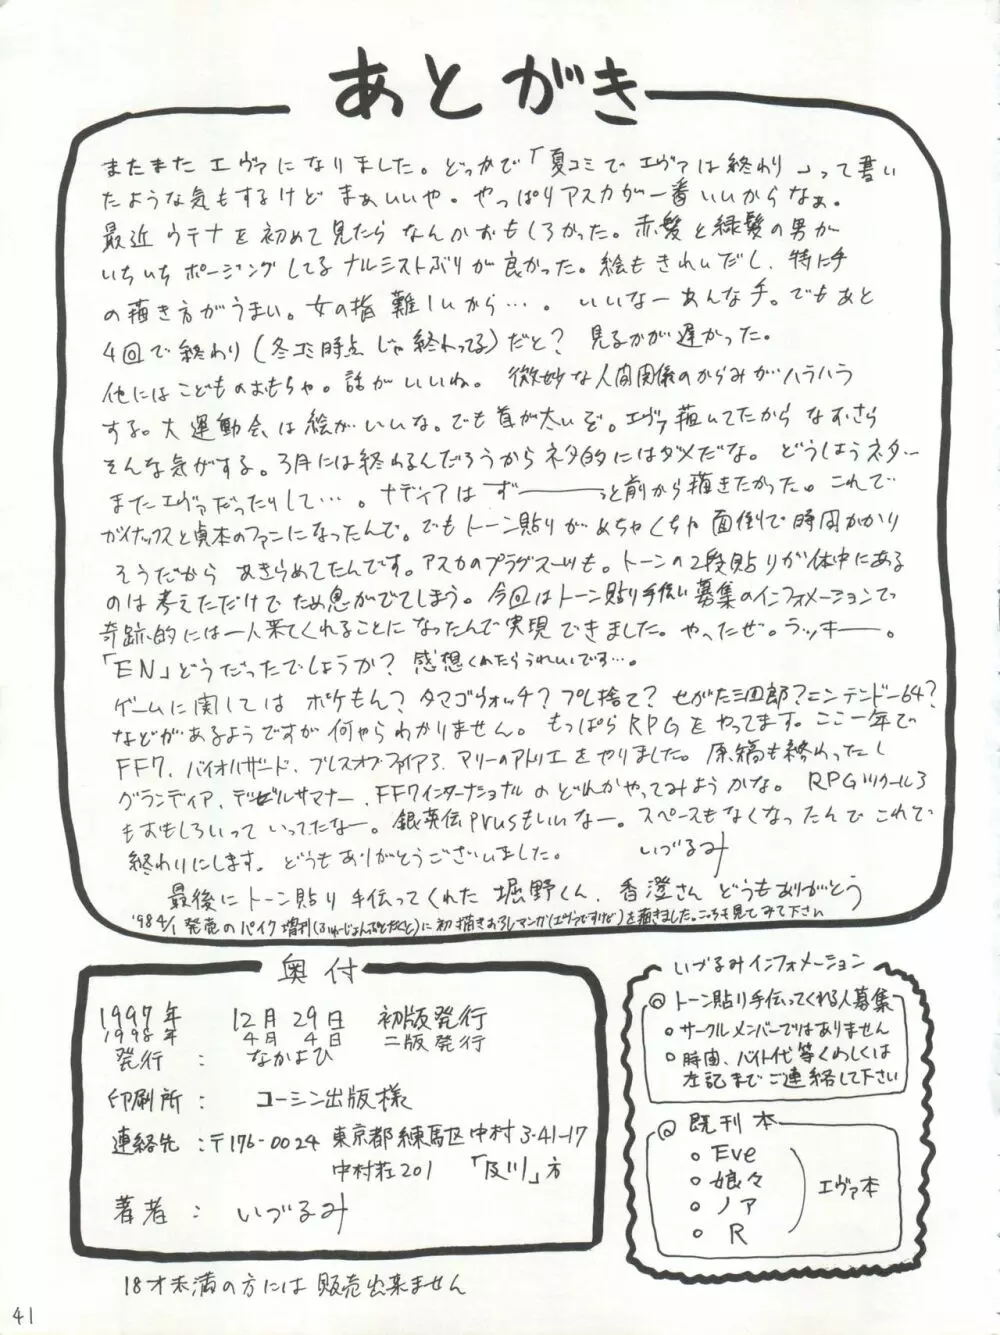 あとがき
またまたエヴァになりました。どっかで「夏コミでエヴァは終わり」って書い
たような気もするけどまぁいいや。やっぱりアスカが一番いいからなぁ。
最近ウテナを初めて見たらなんかおもしろかった。赤髪と緑髪の男が
いちいちポージングしてるナルシストぶりが良かった。絵もきれいだし、特に手
の描き方がうまい。女の指難しいから…。いいなーあんな手。でもあと
4回で終わり(冬コミ時点じゃ終わってる)だと?見るのが遅かった。
他にはこどものおもちゃ。話がいいね。微妙な人間関係のからみがハラハラ
する。大運動会は絵がいいな。でも首が太いぞ。エヴァ描いてたからなおさら
そんな気がする。3月には終わるんだろうからネタ的にはダメだな。どうしようネタ…
またエヴァだったりして…。ナディアはず———っと前から描きたかった。これで
ガイナックスと貞本のファンになったんで。でもトーン貼りがめちゃくちゃ面倒で時間かかり
そうだからあきらめてたんです。アスカのプラグスーツも。トーンの2段貼りが体中にある
のは考えただけでため息がでてしまう。今回はトーン貼り手伝い募集のインフォメーションで
奇跡的には一人来てくれることになったんで実現できました。やったぜ。ラッキー。
「EN」どうだったでしょうか?感想くれたらうれしいです…。
ゲームに関してはポケもん?タマゴウォッチ?プレ捨て?せがた三四郎?ニンテンドー64?
などがあるようですが何やらわかりません。もっぱらRPGをやってます。ここ一年で
FF7、バイオハザード、ブレスオブファイア3、マリーのアトリエをやりました。原稿も終わったし
グランディア、デビルサマナー、FF7インターナショナルのどれかやってみようかな。RPGツクール3
もおもしろいっていってたなー。銀英伝Prusもいいなー。スペースもなくなったんでこれで
終わりにします。どうもありがとうございました。 いづるみ
最後にトーン貼り手伝ってくれた堀野くん、香澄さんどうもありがとう
'98 4/1発売のパイク増刊(ふゅーじょんぷろだくと)に初描きおろしマンガ(エヴァですけど)を描きました。こっちも見てみて下さい
奥付
1997年 12月29日 初版発行
1998年 4月4日 二版発行
発行: なかよひ
印刷所: コーシン出版様
連絡先:〒176-0024 東京都練馬区中村3-41-17
中村荘201 「及川」方
著者: いづるみ
いづるみインフォメーション
◎トーン貼り手伝ってくれる人募集
○サークルメンバーではありません
○時間、バイト代等くわしくは
左記までご連絡して下さい
◎既刊本
○Eve
○娘々
○ノア
○R
エヴァ本
18才未満の方には販売出来ません
41